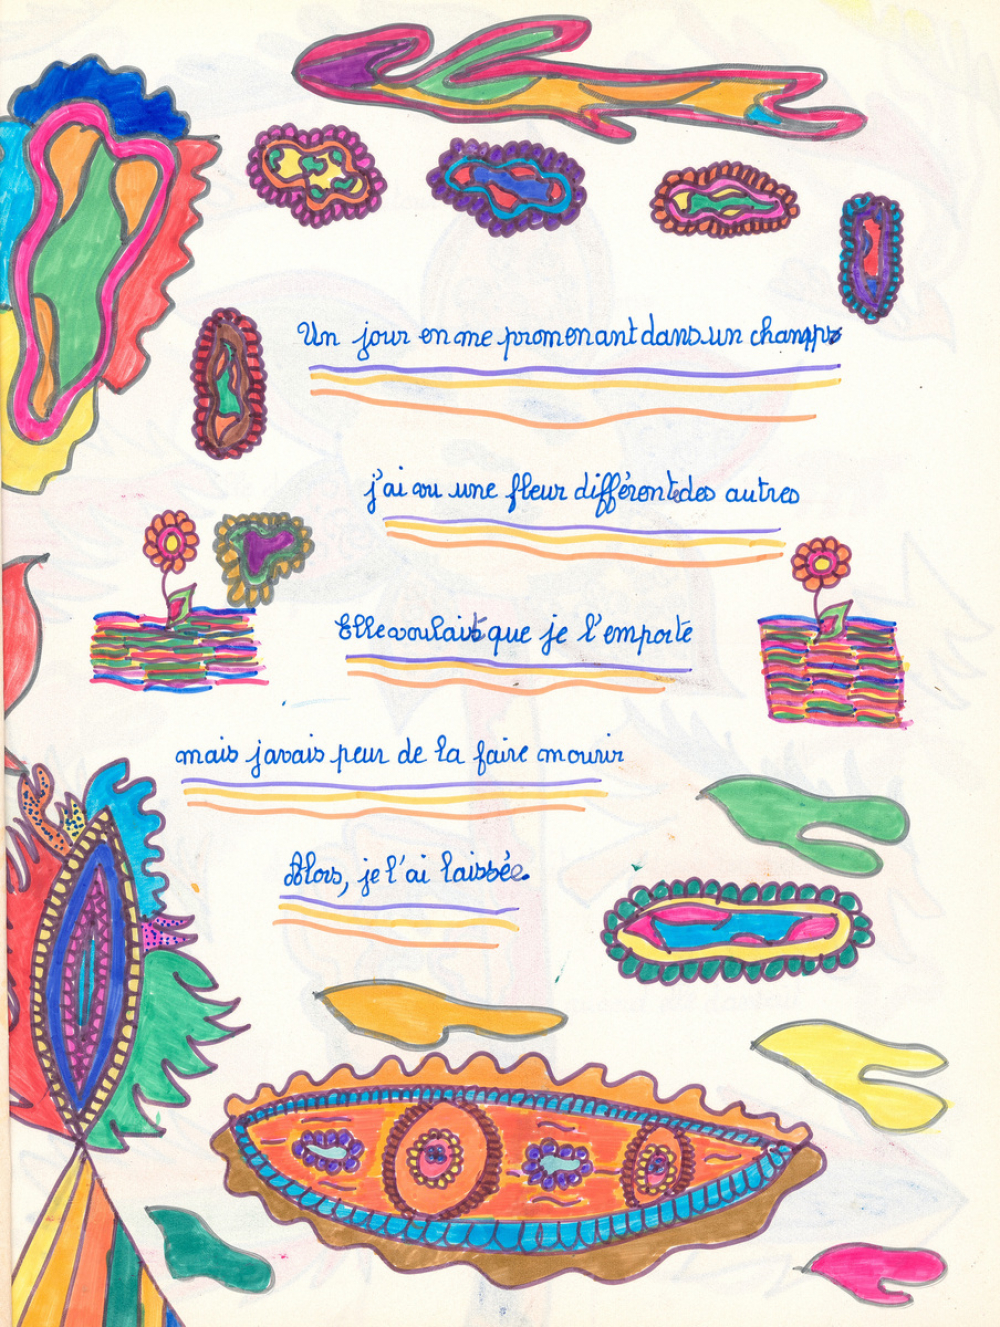 Un jour en me promenant dans un champs
j'ai vu une fleur différente des autres
Elle voulait que je l'emporte
mais javais peur de la faire mourir
Alors, je l'ai laissée.